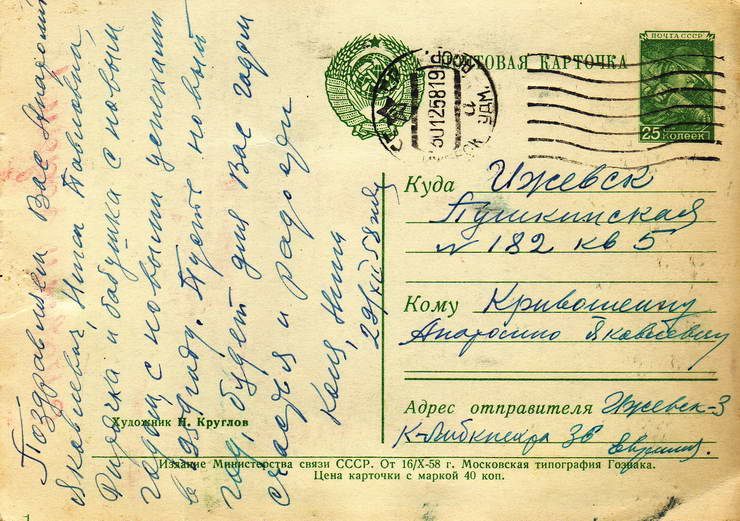 ПОЧТОВАЯ КАРТОЧКА
ПОЧТА СССР
25 КОПЕЕК
30125819
Поздравляем Вас
Яковлевич, Нина Павловна,
и бабушка с новым
годом, с новыми успехами
в 1959 году. Пусть новый
год будет для Вас годом
счастья и радости
Коля, Нина
29/XII 58 г.
Куда Ижевск
Пушкинская
№ 182 кв 5
Кому Кривошеину
Яковлевичу
Адрес отправителя Ижевск-3
К-Либкнехта 36
Художник Н. Круглов
Издание Министерства связи СССР. От 16/X-58 г. Московская типография Гознака.
Цена карточки с маркой 40 коп.